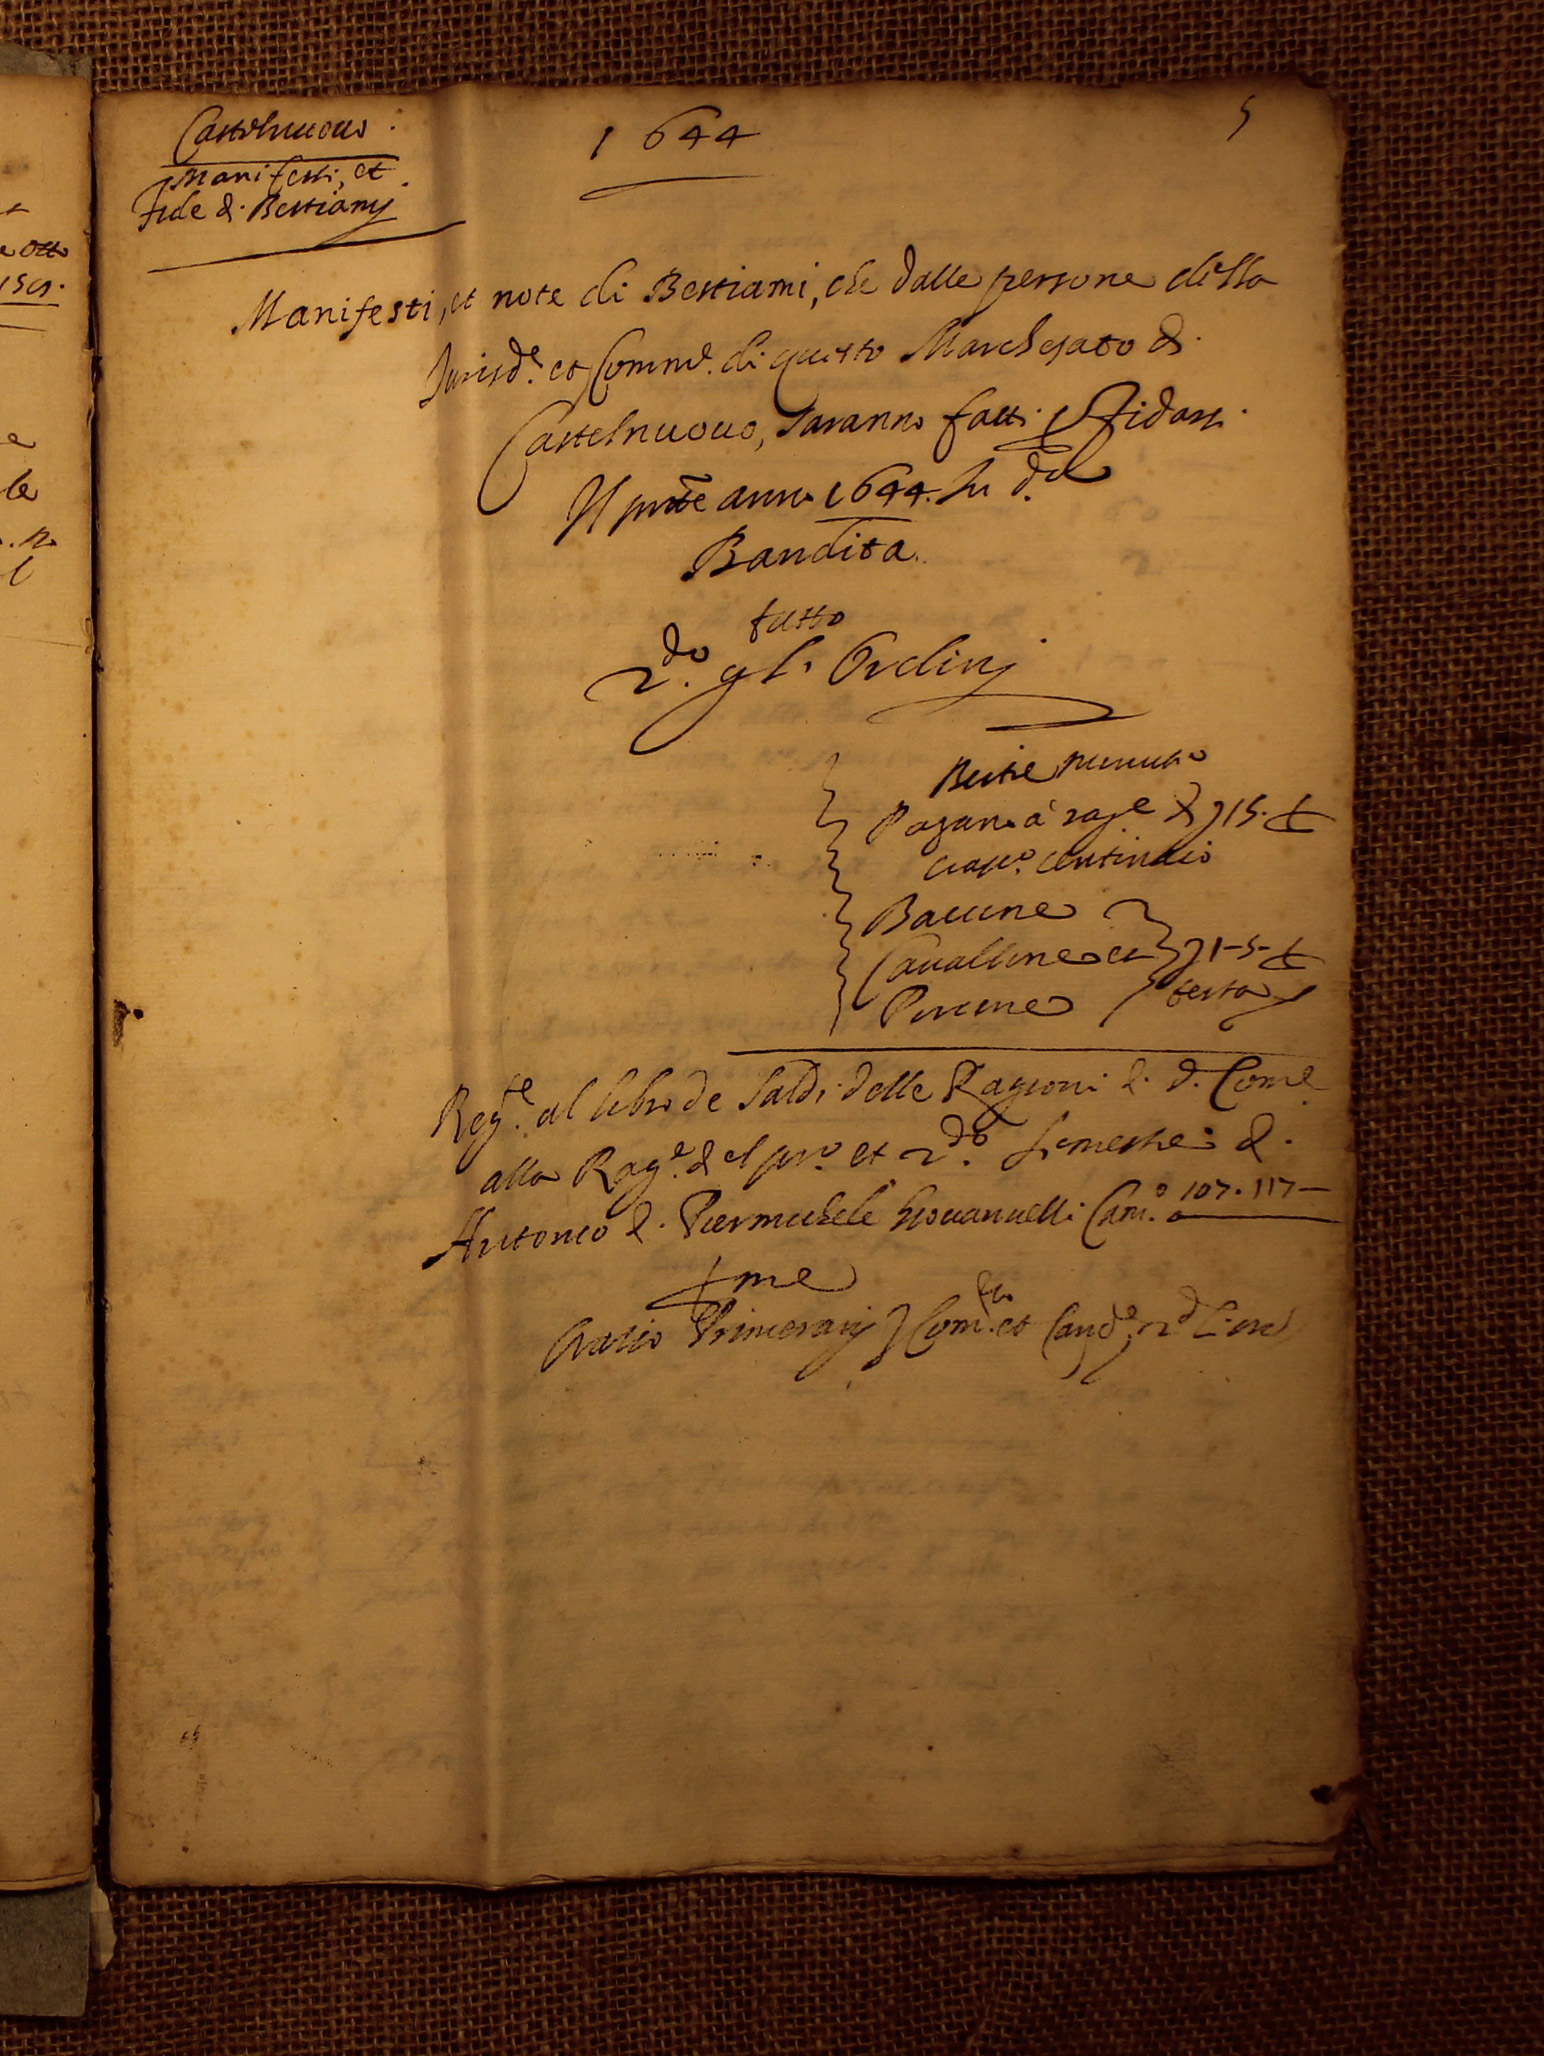 Castelnuouo.
Manifesti, et
fide d. Bestiamj
1644
5
Manifesti, et note di Bestiami, che dalle persone della
Jurisd.e et Comm.e di questo Marchesato d.
Castelnuouo, saranno fatti
Il pnte anno 1644. In d.a
Bandita
tutto
2.do gl. Ordinj
Bestie minute
Pagano à rag.e d 15.
ciasc.o centinaio
Baccine
Caualline et
Porcine
1-5-
testa
Reg.te al libro de Saldi delle Ragioni d. d. Com.e
alla Rag.e del pro. et 2.do Semestre d.
Antonio d. Piermichele Giouannelli Cam.o 107. 117-
me
Oratio Primeranj Com.rio et Canc.e
otto
le